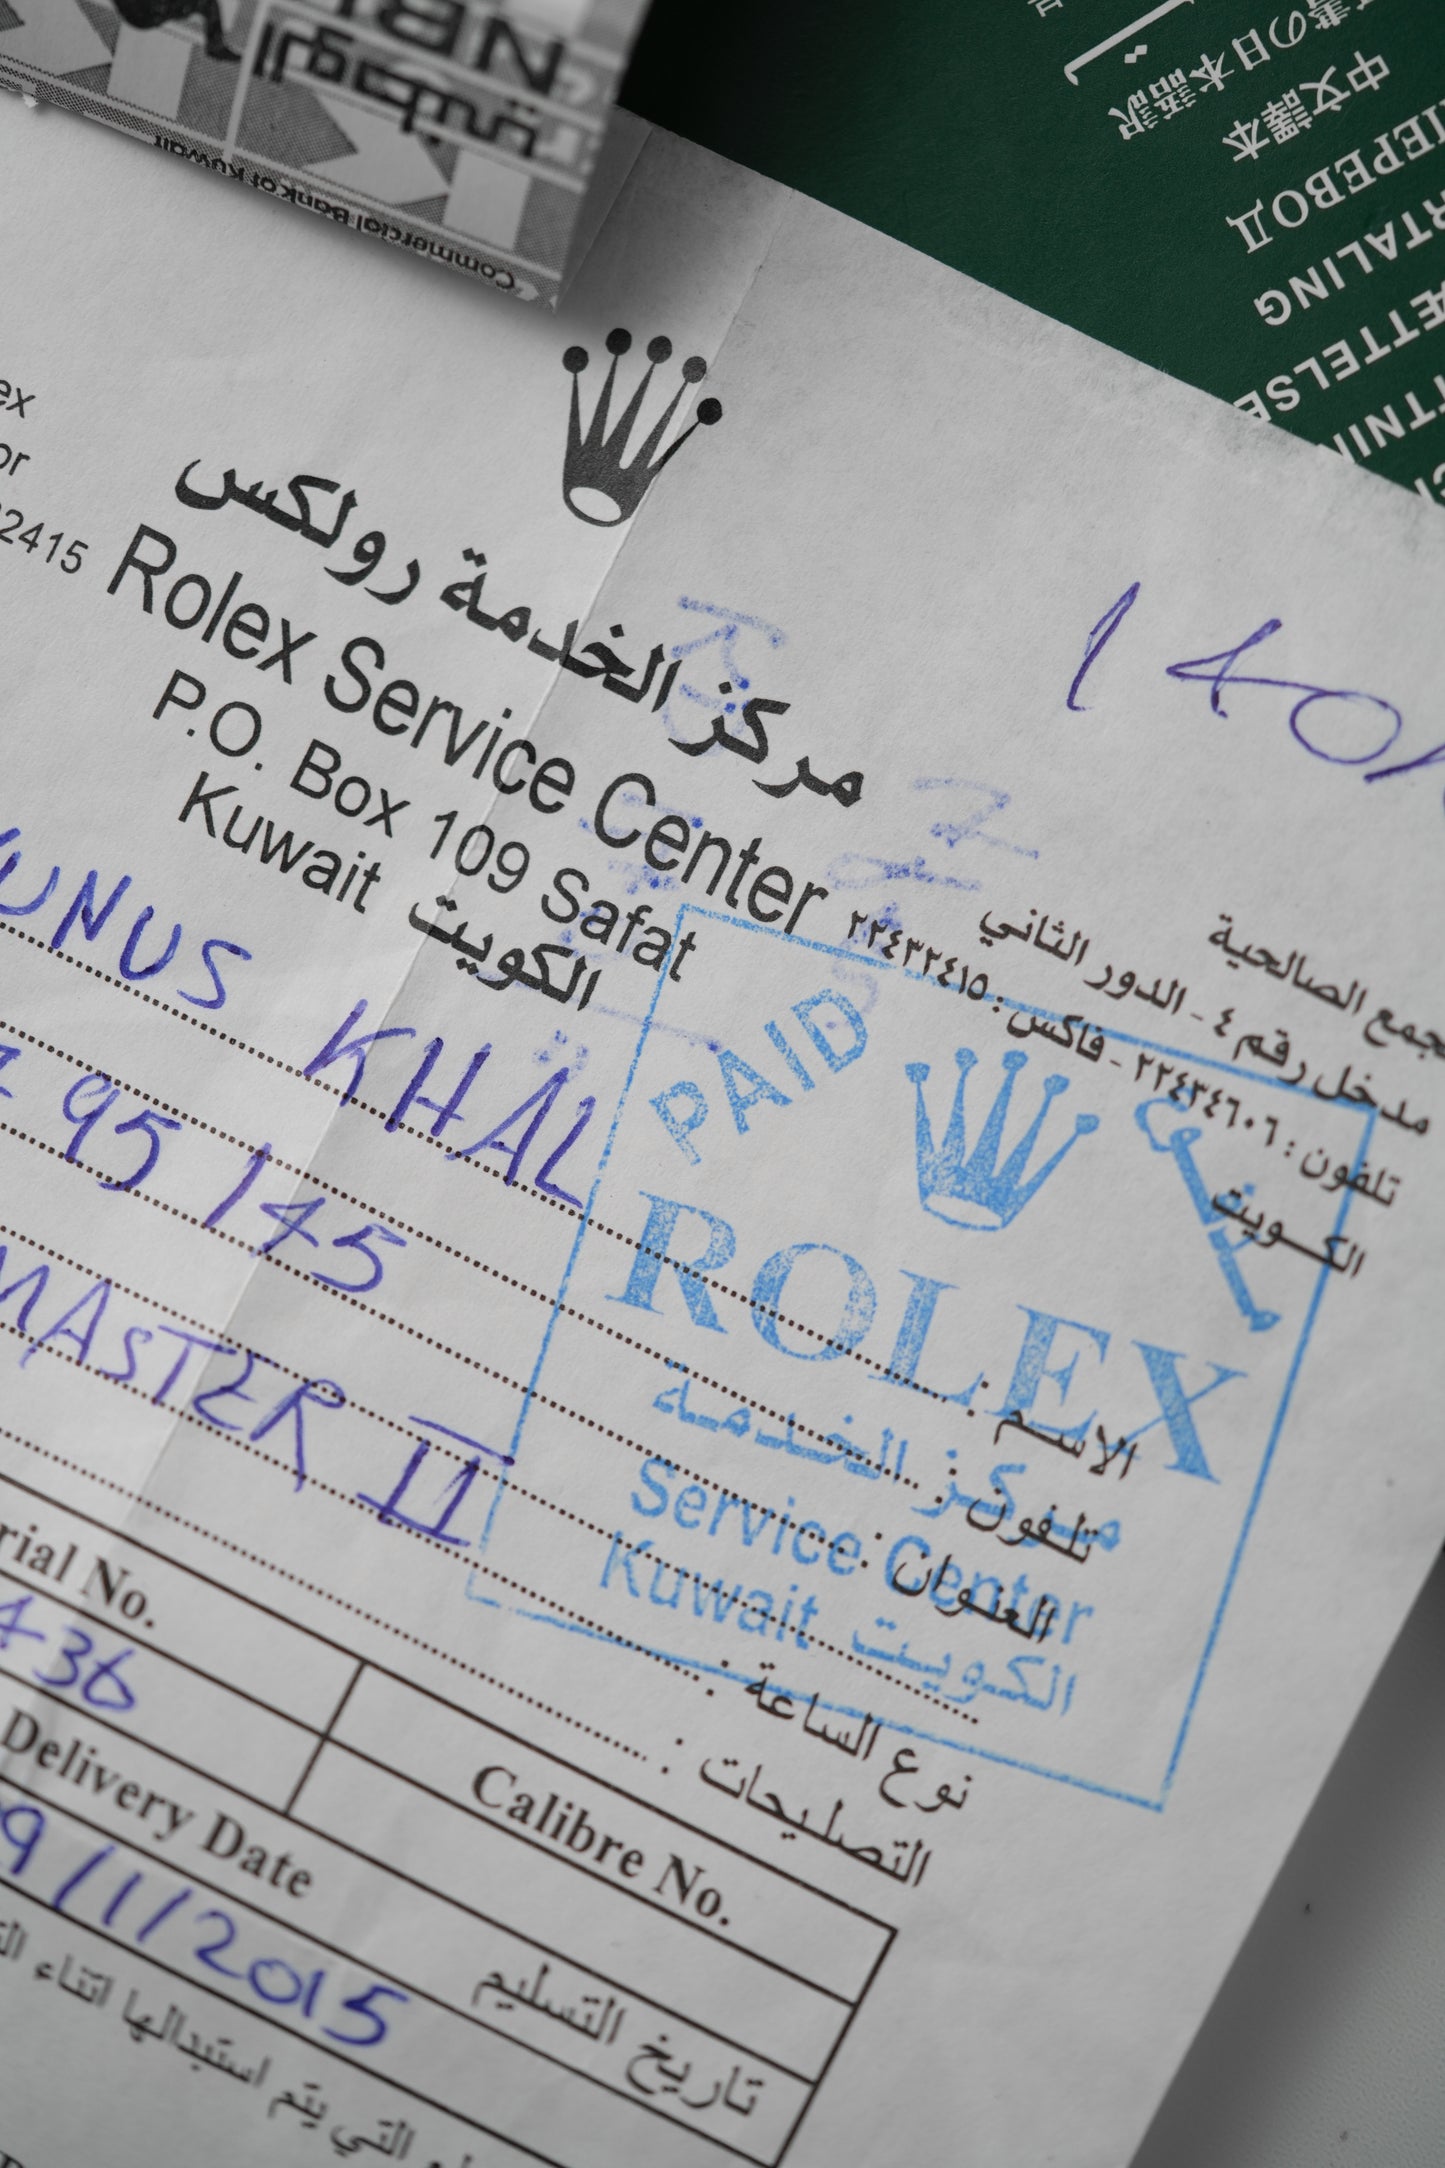 الوطني
NB
Commercial Bank of Kuwait
書の日本語訳
中文譯本
ПЕРЕВОД
RTALING
ÆTTELSE
ex
or
2415
مركز الخدمة رولكس
Rolex Service Center
P.O. Box 109 Safat
Kuwait الكويت
140
جمع الصالحية
مدخل رقم ٤ - الدور الثاني
تلفون : ٢٢٤٣٤٦٠٦ - فاكس : ٢٢٤٣٢٤١٥
الكويت
PAID
ROLEX
مركز الخدمة
Service Center
Kuwait الكويت
الاسم :
YUNUS KHAL
تلفون :
95145
العنوان :
نوع الساعة :
MASTER II
التصليحات :
rial No.
Calibre No.
436
Delivery Date
تاريخ التسليم
9/1/2015
التي يتم استبدالها اثناء